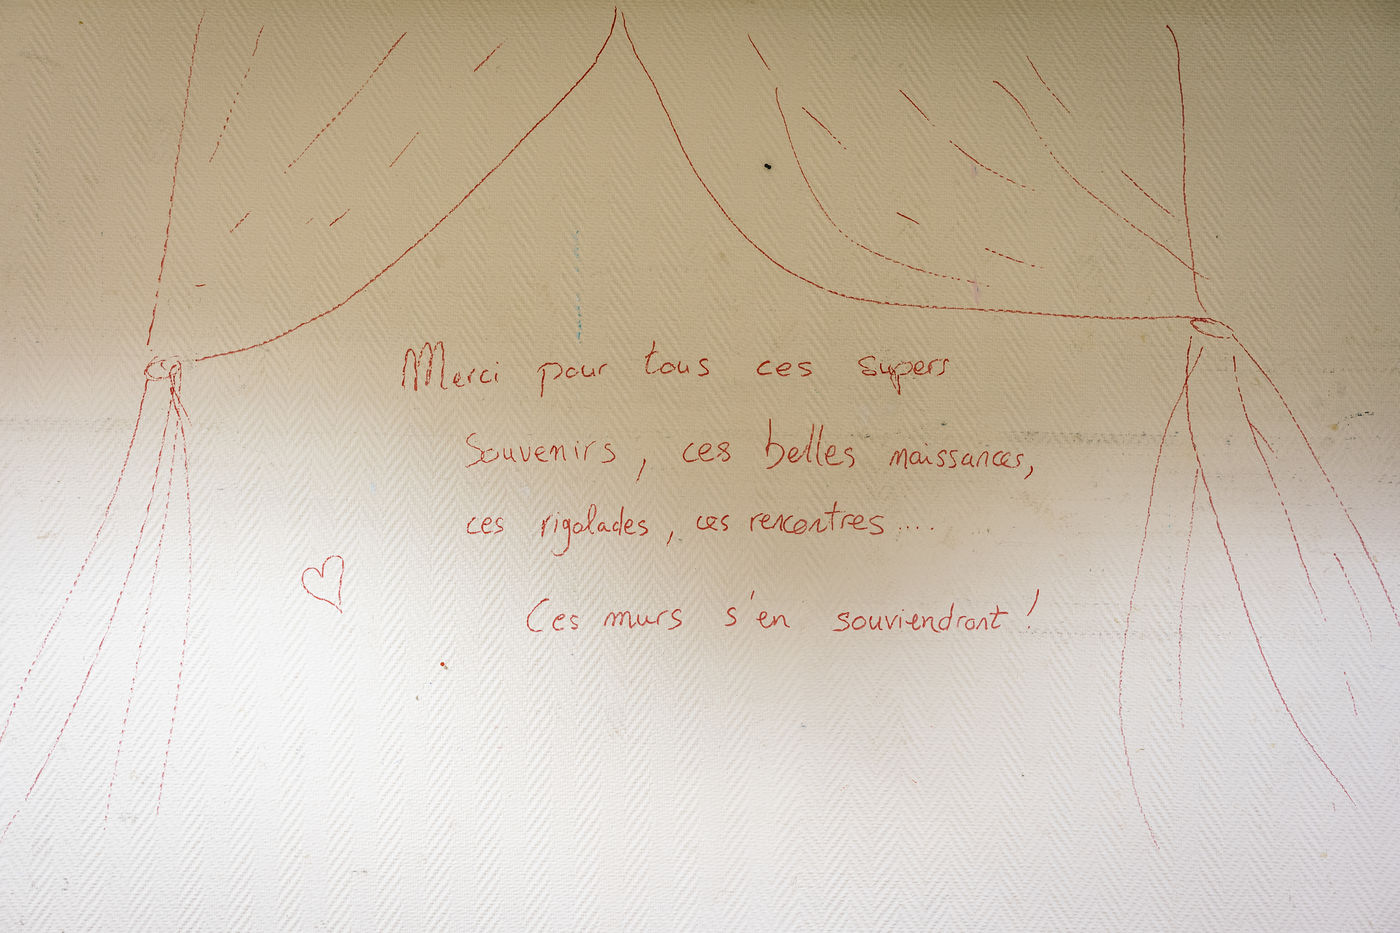 Merci pour tous ces supers
souvenirs, ces belles naissances,
ces rigolades, ces rencontres....
Ces murs s'en souviendront !